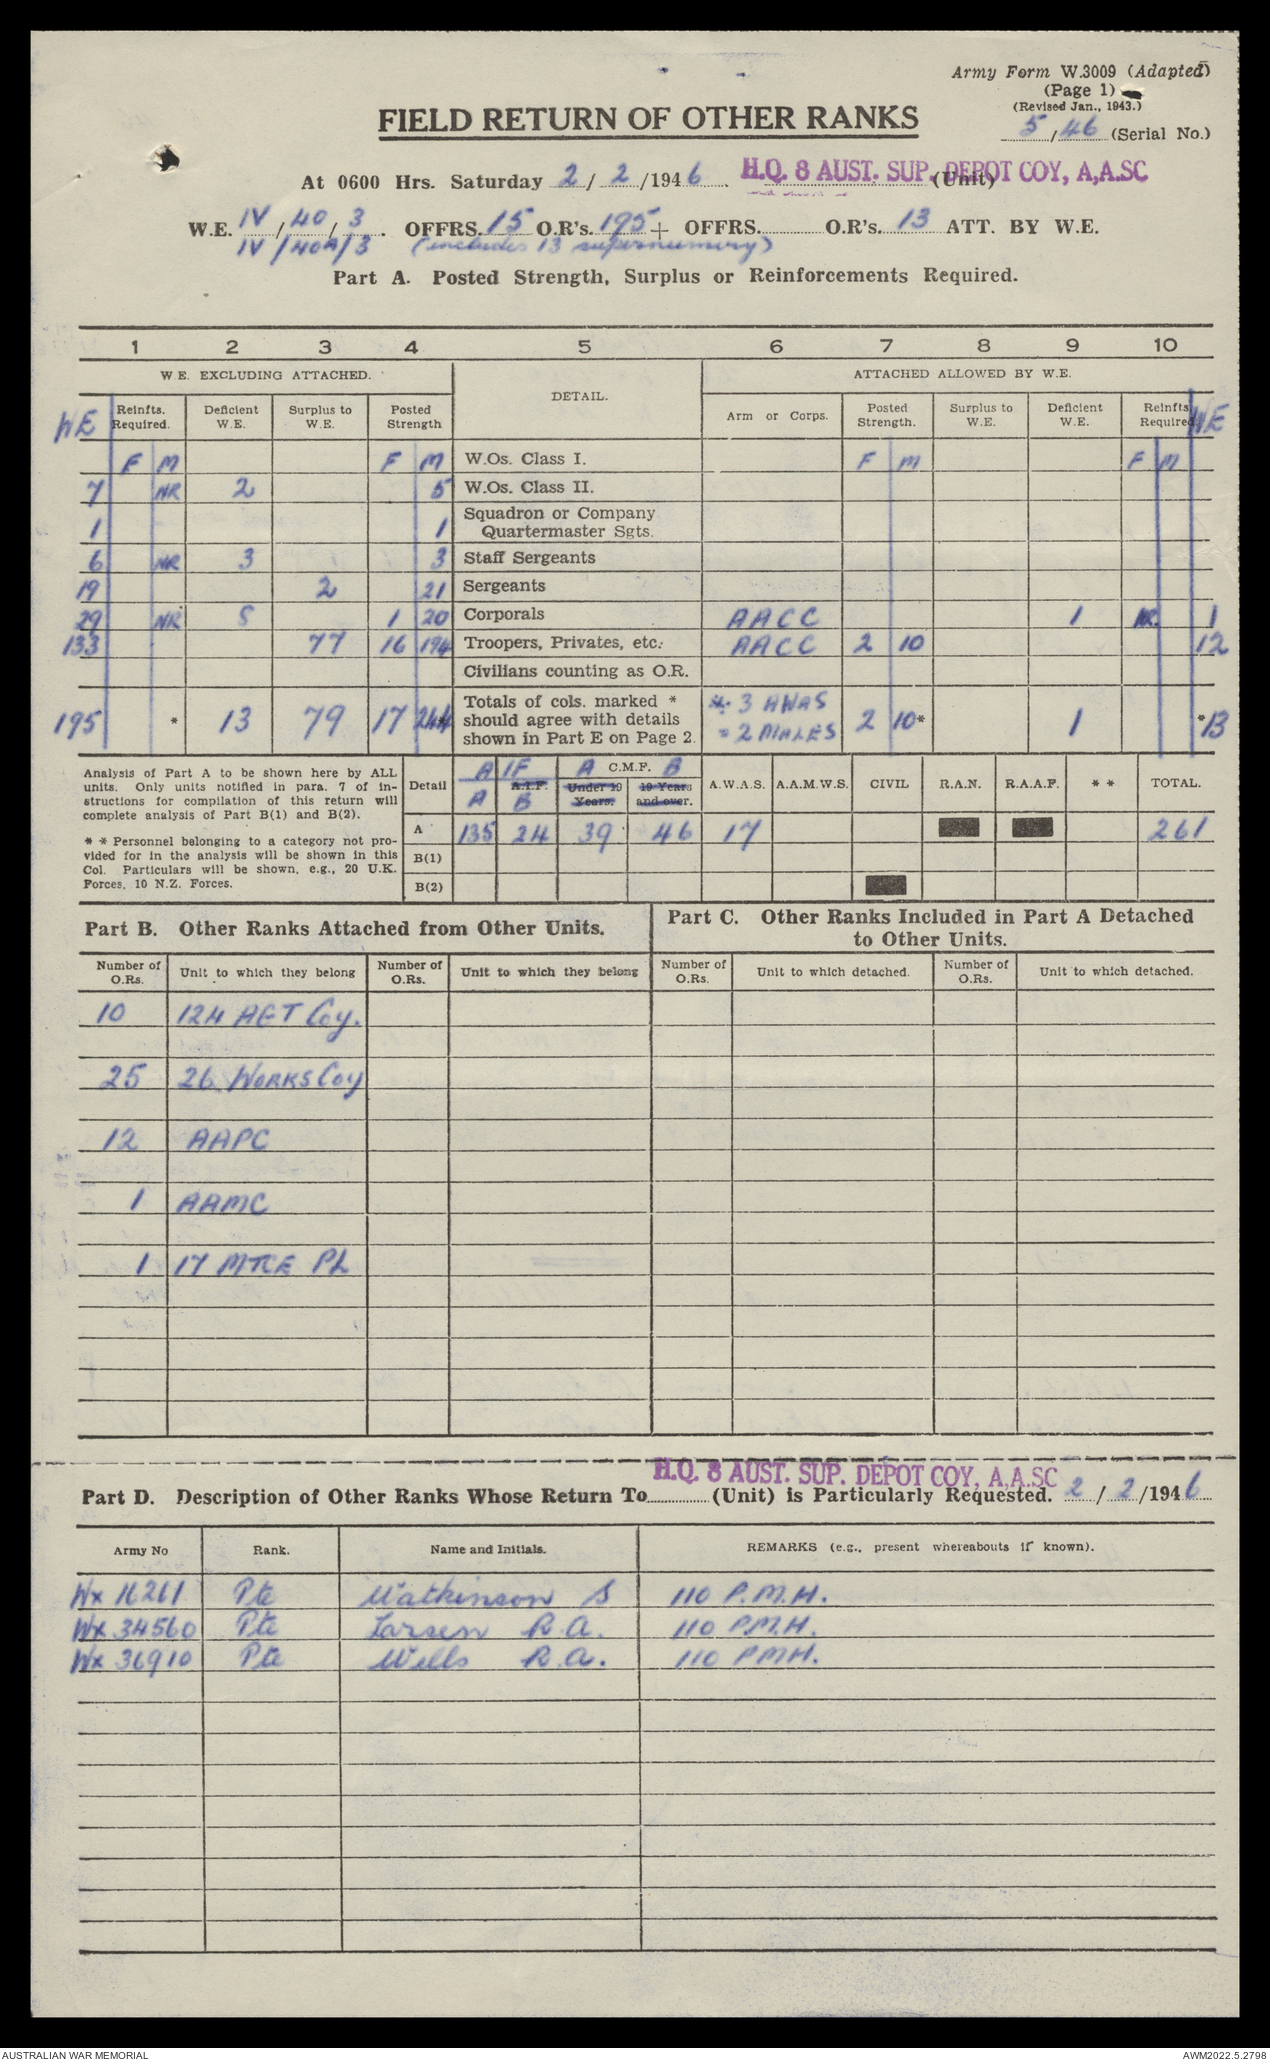 Army Form W.3009 (Adapted)
(Page 1)
(Revised Jan., 1943.)
FIELD RETURN OF OTHER RANKS
5/46 (Serial No.)
At 0600 Hrs. Saturday 2/2/1946. H.Q. 8 AUST. SUP. DEPOT COY, A.A.SC (Unit)
W.E. IV/40/3. OFFRS. 15 O.R's. 195 + OFFRS. O.R's. 13 ATT. BY W.E.
IV/40A/3 (includes 13 supernumery)
Part A. Posted Strength, Surplus or Reinforcements Required.
1 2 3 4 5 6 7 8 9 10
W.E. EXCLUDING ATTACHED. DETAIL. ATTACHED ALLOWED BY W.E.
WE Reinfts. Required. Deficient W.E. Surplus to W.E. Posted Strength Arm or Corps. Posted Strength. Surplus to W.E. Deficient W.E. Reinfts. Required. WE
F M F M W.Os. Class I. F M F M
7 NR 2 5 W.Os. Class II.
1 1 Squadron or Company Quartermaster Sgts.
6 NR 3 3 Staff Sergeants
19 2 21 Sergeants
29 NR 8 1 20 Corporals AACC 1 NR. 1
133 77 16 194 Troopers, Privates, etc. AACC 2 10 12
Civilians counting as O.R.
195 * 13 79 17 244* Totals of cols. marked * should agree with details shown in Part E on Page 2. 3 AWAS 2 MALES 2 10* 1 *13
Analysis of Part A to be shown here by ALL units. Only units notified in para. 7 of instructions for compilation of this return will complete analysis of Part B(1) and B(2).
* * Personnel belonging to a category not provided for in the analysis will be shown in this Col. Particulars will be shown, e.g., 20 U.K. Forces, 10 N.Z. Forces.
Detail AIF A A.I.F. B A C.M.F. B Under 19 Years. 19 Years and over. A.W.A.S. A.A.M.W.S. CIVIL R.A.N. R.A.A.F. * * TOTAL.
A 135 24 39 46 17 261
B(1)
B(2)
Part B. Other Ranks Attached from Other Units.
Part C. Other Ranks Included in Part A Detached to Other Units.
Number of O.Rs. Unit to which they belong Number of O.Rs. Unit to which they belong Number of O.Rs. Unit to which detached. Number of O.Rs. Unit to which detached.
10 124 AGT Coy.
25 26 WORKS Coy
12 AAPC
1 AAMC
1 17 MTCE PL
H.Q. 8 AUST. SUP. DEPOT COY, A.A.SC
Part D. Description of Other Ranks Whose Return To (Unit) is Particularly Requested. 2/2/1946
Army No Rank. Name and Initials. REMARKS (e.g., present whereabouts if known).
Wx 16261 Pte Watkinson S 110 P.M.H.
Wx 34560 Pte Larsen R.A. 110 P.M.H.
Wx 36910 Pte Wells R.A. 110 P.M.H.
AUSTRALIAN WAR MEMORIAL AWM2022.5.2798